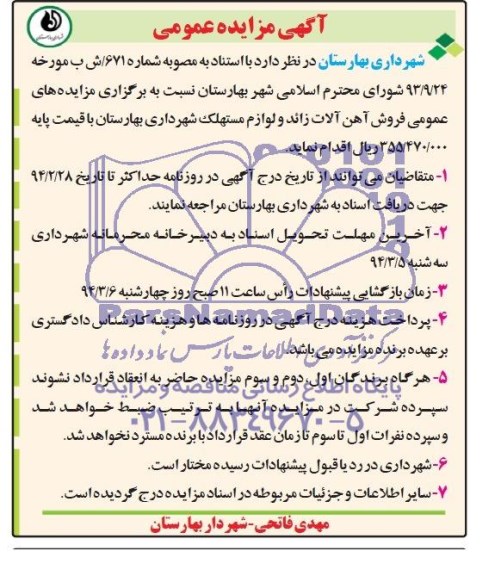 آگهی مزایده عمومی
شهرداری بهارستان در نظر دارد با استناد به مصوبه شماره ۶۷۱/ش ب مورخه
۹۳/۹/۲۴ شورای محترم اسلامی شهر بهارستان نسبت به برگزاری مزایده‌های
عمومی فروش آهن آلات زائد و لوازم مستهلک شهرداری بهارستان با قیمت پایه
۳۵۵/۴۷۰/۰۰۰ ریال اقدام نماید.
۱- متقاضیان می توانند از تاریخ درج آگهی در روزنامه حداکثر تا تاریخ ۹۴/۲/۲۸
جهت دریافت اسناد به شهرداری بهارستان مراجعه نمایند.
۲- آخرین مهلت تحویل اسناد به دبیرخانه محرمانه شهرداری
سه شنبه ۹۴/۳/۵
۳- زمان بازگشایی پیشنهادات رأس ساعت ۱۱ صبح روز چهارشنبه ۹۴/۳/۶
۴- پرداخت هزینه درج آگهی در روزنامه ها و هزینه کارشناس دادگستری
بر عهده برنده مزایده می باشد.
۵- هر گاه برندگان اول، دوم و سوم مزایده حاضر به انعقاد قرارداد نشوند
سپرده شرکت در مزایده آنها به ترتیب ضبط خواهد شد
و سپرده نفرات اول تا سوم تا زمان عقد قرارداد با برنده مسترد نخواهد شد.
۶- شهرداری در رد یا قبول پیشنهادات رسیده مختار است.
۷- سایر اطلاعات و جزئیات مربوطه در اسناد مزایده درج گردیده است.
مهدی فاتحی-شهردار بهارستان
ParsNamadData
پایگاه اطلاع رسانی مناقصه و مزایده
۰۲۱-۸۸۳۴۹۶۷۰-۵